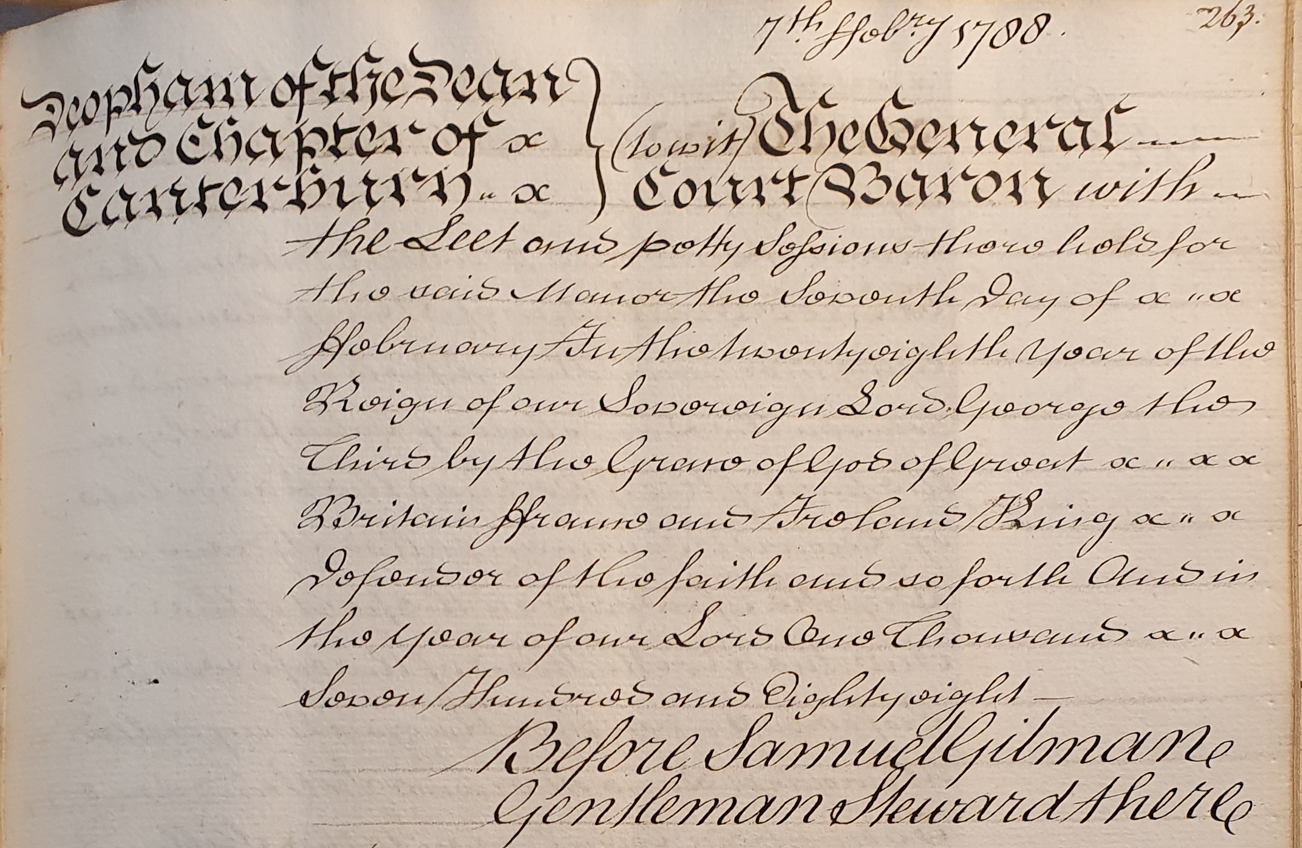 7th ffebry 1788.
263.
Deopham of the Dean
and Chapter of x
Canterbury " x
(to wit) The General
Court Baron with
the Leet and petty Sessions there held for
the said Manor the Seventh Day of x " x
ffebruary In the twentyeighth Year of the
Reign of our Sovereign Lord George the
Third by the Grace of God of Great x " x x
Britain ffrance and Ireland King x " x
Defender of the faith and so forth And in
the Year of our Lord One Thousand x " x
Seven Hundred and Eightyeight —
Before Samuel Gilman
Gentleman Steward there